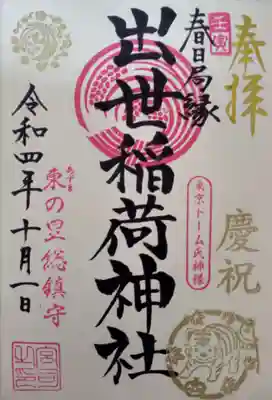 奉拝
慶祝
壬寅
春日局縁
東京ドーム氏神様
出世稲荷神社
東の旦総鎮守
令和四年十月一日